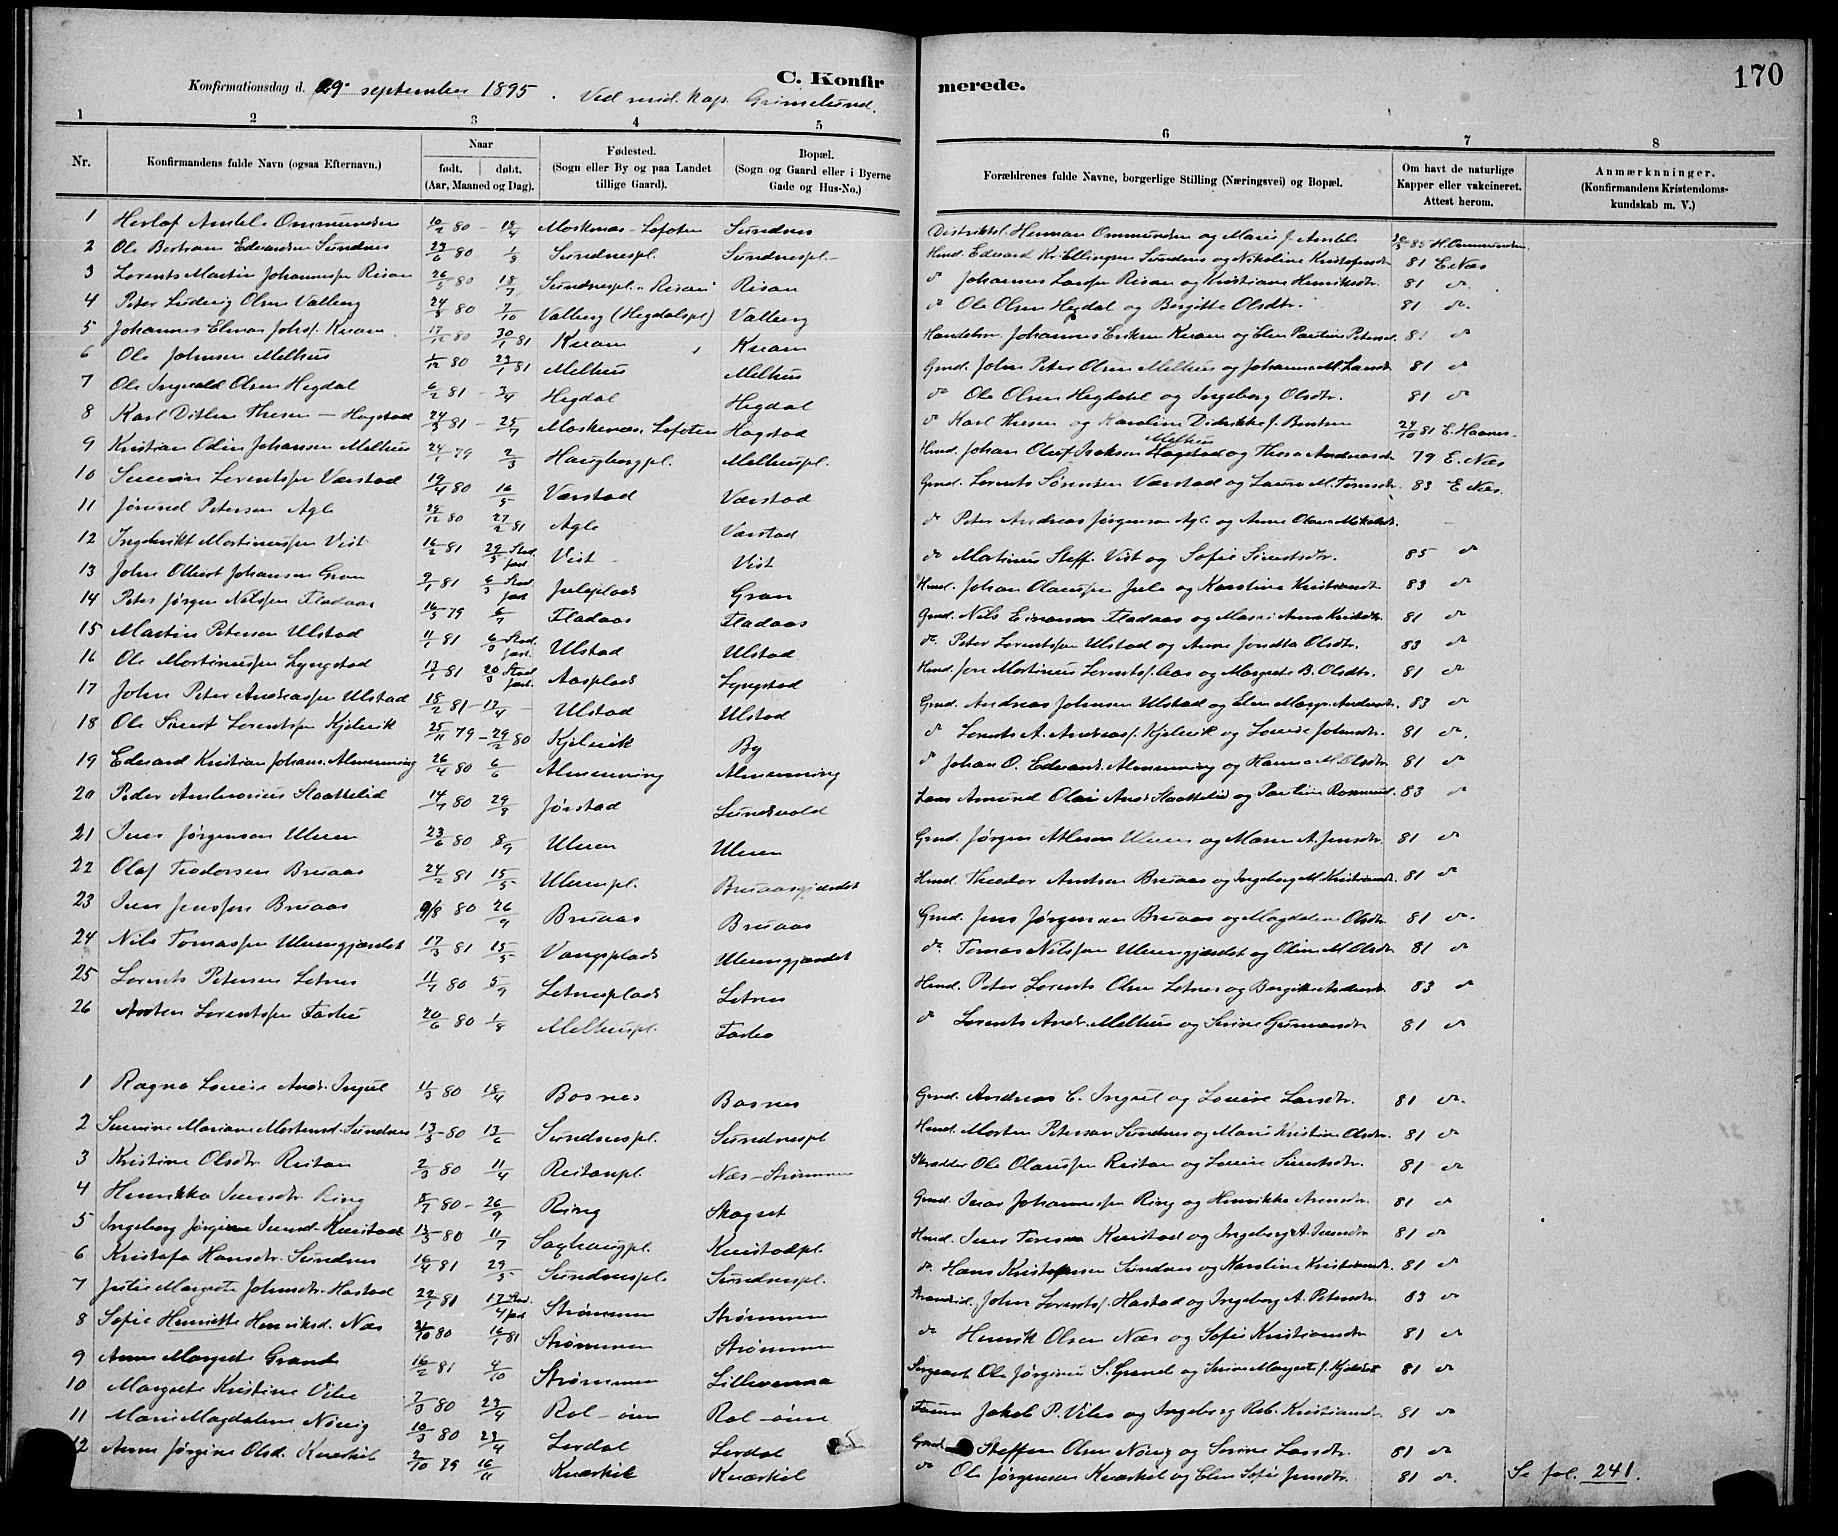 170
C. Konfirmerede.
Konfirmationsdag d. 29. september 1895. Ved resid. kap. Grimelund.
1 2 3 4 5 6 7 8
Nr. Konfirmandens fulde Navn (ogsaa Efternavn.) Naar født. døbt. (Aar, Maaned og Dag). Fødested. (Sogn eller By og paa Landet tillige Gaard). Bopæl. (Sogn og Gaard eller i Byerne Gade og Hus-No.) Forældrenes fulde Navne, borgerlige Stilling (Næringsvei) og Bopæl. Om havt de naturlige Kapper eller vakcineret. Attest herom. Anmærknninger. (Konfirmandens Kristendomskundskab m. V.)
1 Amble Ommundsen 10/2 80 - 18/4 Moskenæs - Lofoten Sundnes Herman Ommundsen og Marie J. Amble 85 H. Ommundsen
2 Ole Bertram Edvardsen Sundnes 29/6 80 1/8 Sundnespl. Sundnespl. Husmd. Edvard Kr. Ellingsen Sundnes og Nikoline 81 E. Næs
3 Lorents Martin Johannessen Risan 26/5 80 18/7 Sundnespl. Risan Risan do Johannes Larssen Risan og Kristiane Henriksdtr. 81 do
4 Peter Ludvig Olsen Valberg 24/8 80 7/10 Valberg (Hegdalspl) Valberg do Ole Olsen Hegdal og Bergitte Olsdtr. 81 do
5 Johannes Elenas Johs. Kvam 17/12 80 30/1 81 Kvam Kvam Johannes Eriksen Kvam og Elen Pauline Petersd. 81 do
6 Ole Johnsen Melhus 1/12 80 29/1 81 Melhus Melhus Grmd. John Peter Olsen Melhus og Johanna M. Larsdt 81 do
7 Ole Ingvald Olsen Hegdal 6/2 81 - 3/4 Hegdal Hegdal do Ole Olsen Hegdahl og Ingeborg Olsdtr. 81 do
8 Karl Ditlev Thesen - Hogstad 24/3 81 - 25/7 Moskenæs, Lofoten Hogstad do Karl Thesen og Karoline Didrikke J. Bentsen 29/10 81 E. Haanes
9 Kristian Odin Johansen Melhus 24/1 79 2/3 Haugbergpl. Melhuspl. Husmd. Johan Oluf Isaksen Melhus og Thora Andreasdt 79 E. Næs
10 Severin Lorentssen Værstad 19/4 80 16/5 Værstad Værstad Grmd. Lorents Sørensen Værstad og Laura M. 83 E. Næs
11 Jørund Petersen Agle 29/12 80 27/2 81 Agle Værstad do Peter Andreas Jørgensen Agle og Anne Olava
12 Ingebrikt Martinussen Vist 16/2 81 29/5 Vist Vist do Martinus Steff. Vist og Sofie Sivertsdtr. 85 do
13 John Olbert Johansen Gran 9/1 81 6/3 Juleplads Gran Husmd. Johan Olaussen Jule og Karoline Kristiansdt 83 do
14 Peter Jørgen Nilssen Fladaas 16/5 79 6/7 Fladaas Fladaas Grmd. Nils Fladaas og 81 do
15 Martin Petersen Ulstad 11/1 81 6/3 Ulstad Ulstad do Peter Lorentssen Ulstad og Anne Olsdtr. 83 do
16 Ole Mortinussen Lyngstad 13/1 81 20/3 Aasplads Lyngstad Husmd. Mortinus Lorents. Aas og Margrete B. Olsdtr. 81 do
17 John Peter Andreassen Ulstad 18/2 81 - 17/4 Ulstad Ulstad Grmd. Andreas Johnsen Ulstad og Elen Margr. Andersdt. 83 do
18 Ole Sivert Lorentssen Kjelvik 25/11 79 - 29/2 80 Kjelvik By do Lorents A. Andreas. Kjelvik og Lovise Johnsdtr. 81 do
19 Edvard Kristian Johans. Almenning 26/4 80 6/6 Almenning Almenning do Johan O. Edvards. Almenning og Hanna M. Olsdtr 81 do
20 Peder Ambrosius Slaattelid 14/7 80 29/8 Jørstad Sundvold Lars Amund Olai Slaattelid og Pauline 83 do
21 Iver Jørgensen Ulven 23/6 80 8/9 Ulven Ulven Grmd. Jørgen Ulven og Maren A. Jensdtr. 81 do
22 Olaf Teodorsen Bruaas 24/2 81 15/5 Ulvenpl. Bruaasgjærdet Husmd. Theodor Bruaas og Ingeborg M. Kristiansdt. 81 do
23 Iver Jenssen Bruaas 9/8 80 26/9 Bruaas Bruaas Grmd. Jens Jørgensen Bruaas og Magdalene Olsdtr. 81 do
24 Nils Tomassen Ulvengjærdet 17/3 81 15/5 Vangsplads Ulvengjærdet do Tomas Nilssen Ulvengjærdet og Oline M. Olsdtr 81 do
25 Lorents Petersen Letnes 11/7 80 5/9 Letnesplads Letnes Husmd. Peter Lorents Olsen Letnes og 83 do
26 Lorentssen 20/6 80 1/8 Melhuspl. do Lorents Andr. Melhus og Serine 81 do
1 Ragna Lovise Andr. Ingul 11/3 80 18/4 Bosnes Bosnes Grmd. Andreas C. Ingul og Lovise Larsdtr. 81 do
2 Severine Mariane Mortensd. Sundnes 13/5 80 13/6 Sundnespl. Sundnespl Husmd. Morten Petersen Sundnes og Marie Kristine Olsdtr. 81 do
3 Kristine Olsdtr. Reitan 2/3 80 11/4 Reitanpl. Næs - Strømmen Skredder Ole Olaussen Reitan og Lovise Sivertsdtr. 81 do
4 Henrikka Iversdtr. Ring 8/7 80 - 26/9 Ring Skogset Grmd. Iver Johannessen Ring og Henrikke 81 do
5 Ingeborg Jørgine Iversd. Kvistad 13/5 80 11/7 Saghaugpl. Kvistadpl. Husmd. Iver Kvistad og Ingeborg A. Iversdtr 81 do
6 Kristofa Hansdtr. Sundnes 16/4 81 29/5 Sundnespl. Sundnespl. do Hans Kristofersen Sundnes og Karoline Kristiansdt. 81 do
7 Julie Margrete Johnsdtr. Hastad 22/1 81 17/4 Strømmen Strømmen Strandsid. John Lorents. Hastad og Ingeborg A. Petersdtr. 83 do
8 Sofie Henriette Henriksd. Næs 21/10 80 16/1 81 Strømmen Strømmen do Henrik Olsen Næs og Sofie Kristiansdtr 81 do
9 Anna Margrete Grande 16/2 81 4/10 Strømmen Sergeant Ole Jørginus S. Grand og Serine Margrete 81 do
10 Margrete Kristine Vibe 7/3 80 23/4 Rol-øien Rol-øien Jakob P. Vibe og Ingeborg Reb. Kristiansdtr. 81 do
11 Marie Magdalene Norvig 10/3 80 29/4 Lerdal Lerdal Grmd. Steffen Olsen Norvig og Serine Larsdtr. 81 do
12 Anne Jørgine Olsd. Kværkil 2/10 79 16/11 Kværkil Kværkil do Ole Jørgensen Kværkil og Elen Sofie Jensdtr. 81 do Se fol. 241.